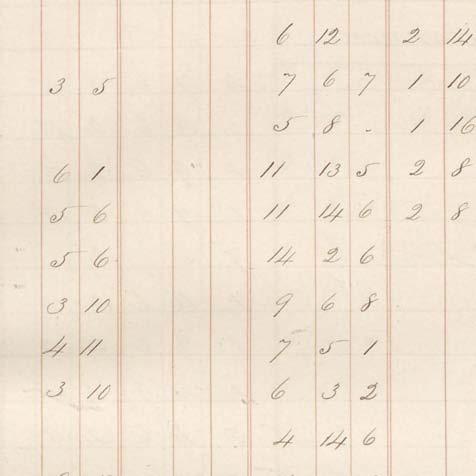 6 12 2 14
3 5 7 6 7 1 10
5 8 - 1 16
6 1 11 13 5 2 8
5 6 11 14 6 2 8
5 6 14 2 6
3 10 9 6 8
4 11 7 5 1
3 10 6 3 2
4 14 6